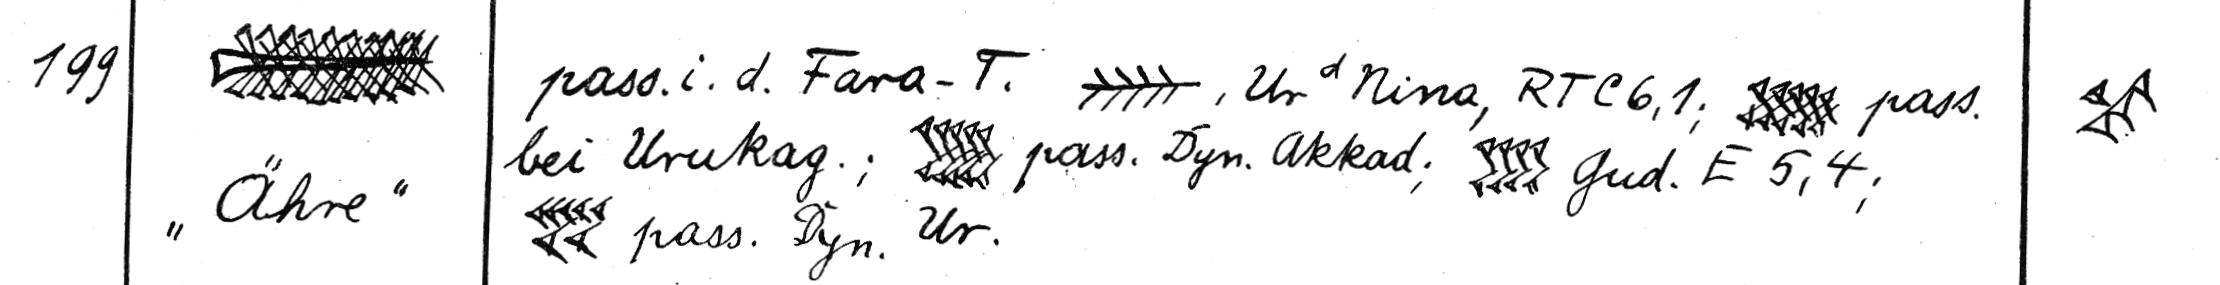 199 pass. i. d. Fara-T. , Ur ᵈNina, RTC 6,1; pass.
bei Urukag.; pass. Dyn. Akkad; Gud. E 5,4;
„Ähre“ pass. Dyn. Ur.